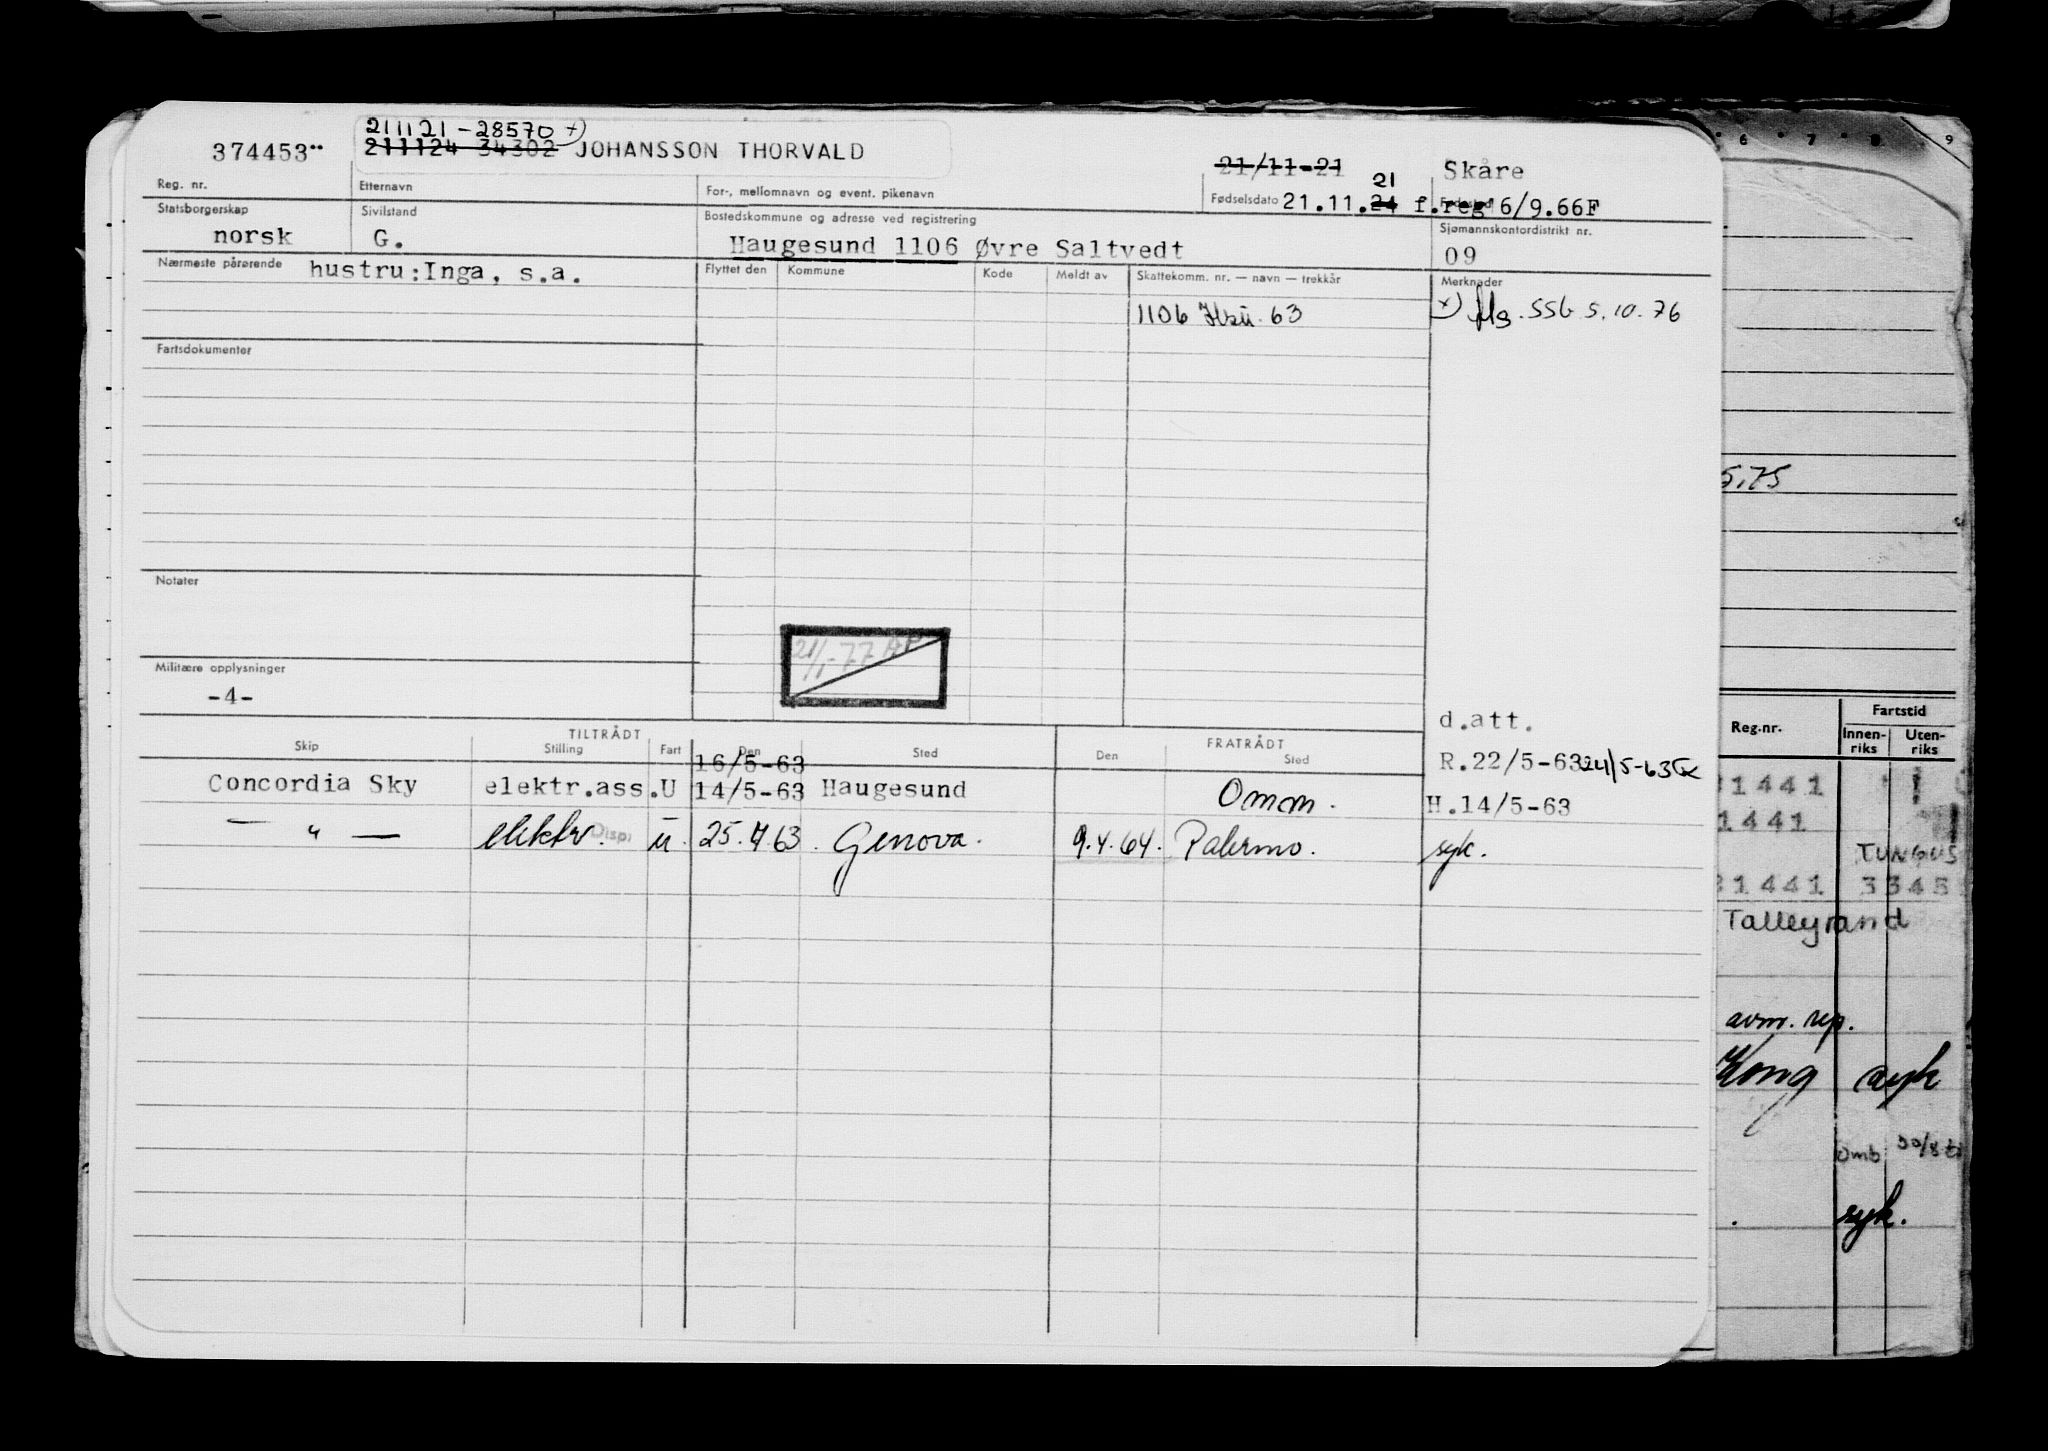 211121-28570 x)
374453" 211124 34302 JOHANSSON THORVALD 21/11-21 Skåre
Reg. nr. Etternavn For-, mellomnavn og event. pikenavn Fødselsdato 21.11.24 21 f.reg 6/9.66F
Statsborgerskap Sivilstand Bostedskommune og adresse ved registrering Sjømannskontordistrikt nr.
norsk G. Haugesund 1106 Øvre Saltvedt 09
Nærmeste pårørende hustru:Inga, s.a. Flyttet den Kommune Kode Meldt av Skattekomm. nr. — navn — trekkår Merknader
1106 63 x) SSB 5.10.76
Fartsdokumenter
5,75
Notater
21/1-77
Militære opplysninger
-4-
d.att.
TILTRÅDT FRATRÅDT
Skip Stilling Fart Den Sted Den Sted
16/5-63 R.22/5-63 24/5-63
Concordia Sky elektr.ass.U 14/5-63 Haugesund Omm. H.14/5-63
— " — elektr. Disp. u. 25.7.63. Genova. 9.4.64. Palermo. syk.
6 7 8 9
Reg.nr. Fartstid
Innen-riks Uten-riks
1441
1441
TUNGUS
1441 3345
Talleyrand
avm. rep.
Kong syk
omb 30/8
syk.